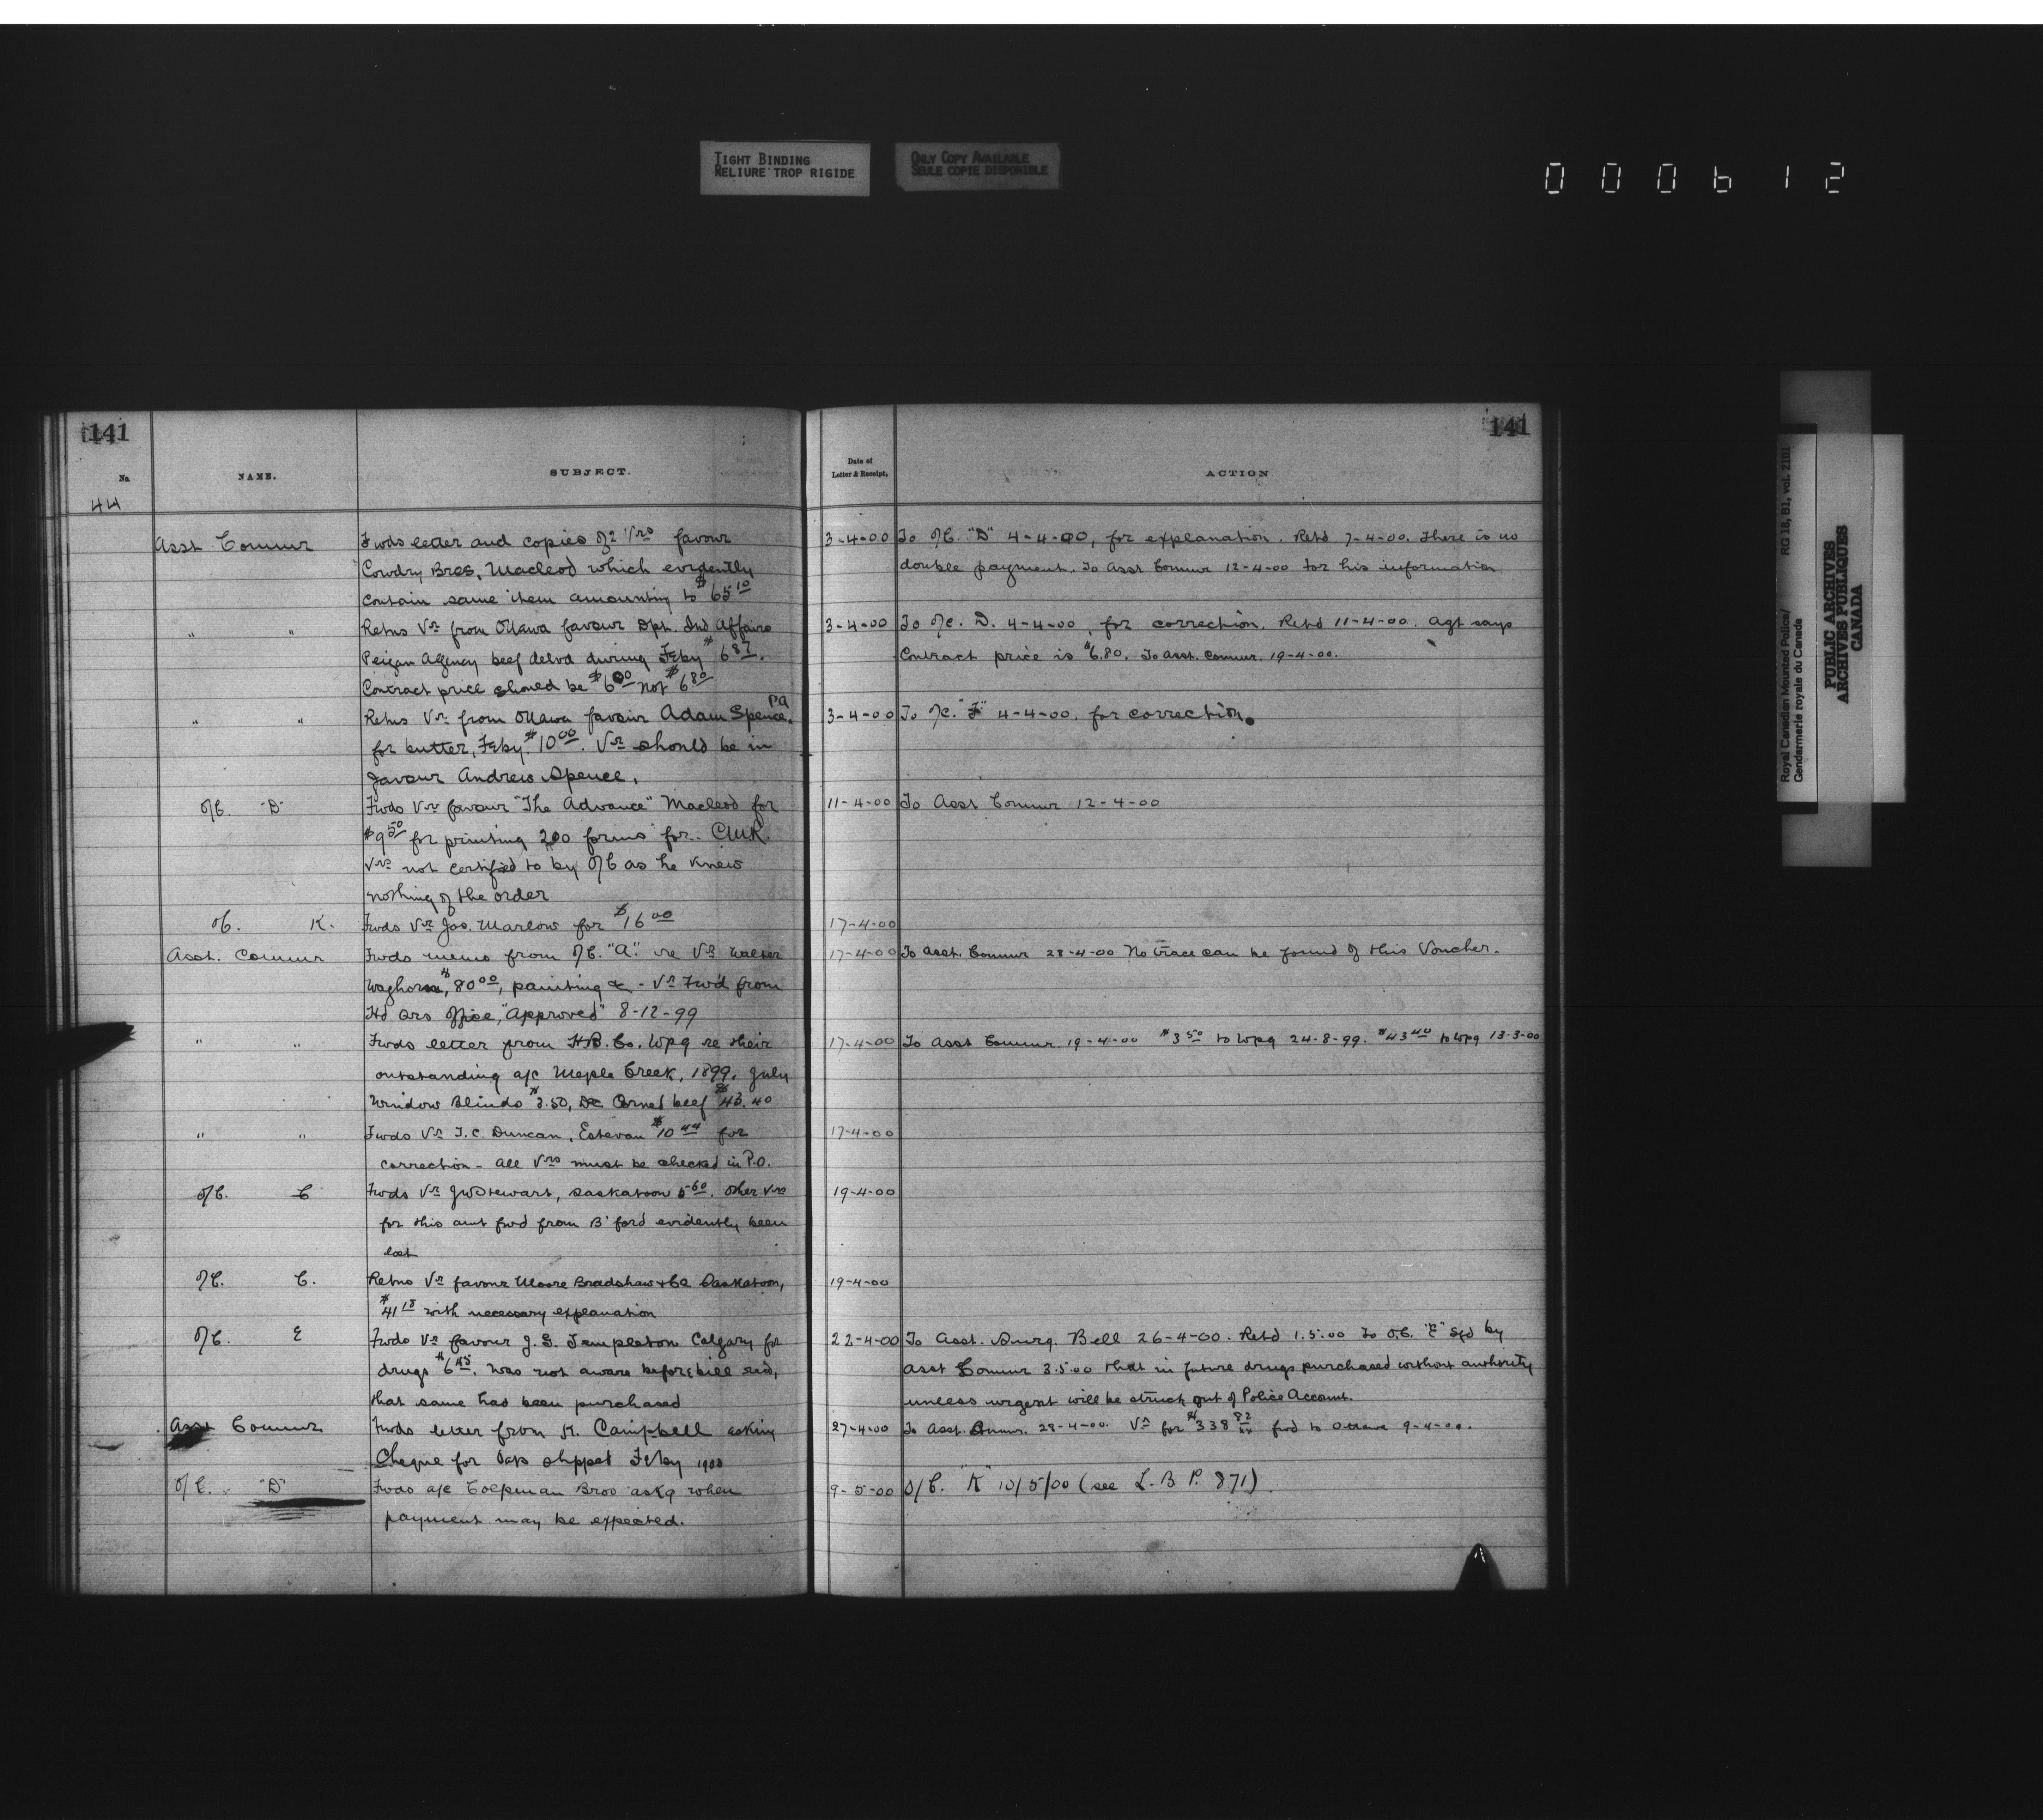 TIGHT BINDING
RELIURE TROP RIGIDE
ONLY COPY AVAILABLE
SEULE COPIE DISPONIBLE
000612
141
No
NAME.
SUBJECT.
44
Asst Commr
Fwds letter and copies of 2 Vrs favour
Cowdry Bros, Macleod which evidently
contain same item amounting to $65 10
" "
Retns Vr from Ottawa favour Dpt. Ind Affairs
Peigan Agency beef delvd during Feby $6 87.
Contract price should be $6 00 not $6 80
" "
Retns Vr from Ottawa favour Adam Spence, P.A
for butter, Feby. $10 00. Vr should be in
favour Andrew Spence.
O/C. "D"
Fwds Vr favour "The Advance" Macleod for
$9 50 for printing 200 forms for
Vrs not certified to by O/C as he knew
nothing of the order
O/C. K.
Fwds Vr Jos. Marlow for $16 00
Asst. Commr
Fwds memo from O/C. "A". re Vr Walter
Waghorn, $80 00, painting &c - Vr Fwd from
Hd Qrs Office, "Approved" 8-12-99
" "
Fwds letter from H.B. Co. Wpg re their
outstanding a/c Maple Creek, 1899, July
Window Blinds $3.50, Dec Corned beef $43.40
" "
Fwds Vr T.C. Duncan, Estevan $10 44 for
correction - all Vrs must be checked in P.O.
O/C. C
Fwds Vr JW Stewart, Saskatoon 5 60. Other Vrs
for this amt fwd from B'ford evidently been
lost
O/C. C.
Retns Vr favour Moore Bradshaw & Co Saskatoon,
$41 18 with necessary explanation
O/C. E
Fwds Vr favour J. G. Templeton Calgary for
drugs $6 45. Was not aware before bill recd,
that same had been purchased
Asst Commr
Fwds letter from K. Campbell asking
Cheque for Oats shipped Feby 1900
O/C. "D"
Fwds a/c Bros askg when
payment may be expected.
141
Date of
Letter & Receipt,
ACTION
3-4-00 To O/C. "D" 4-4-00, for explanation. Retd 7-4-00. There is no
double payment. To Asst Commr 12-4-00 for his information
3-4-00 To O/C. D. 4-4-00, for correction. Retd 11-4-00. Agt says
Contract price is $6.80. To Asst. Commr. 19-4-00.
3-4-00 To O/C. "F" 4-4-00. for correction.
11-4-00 To Asst Commr 12-4-00
17-4-00
17-4-00 To Asst. Commr 28-4-00 No trace can be found of this Voucher.
17-4-00 To Asst Commr 19-4-00 $3 50 to Wpg 24-8-99. $43 40 to Wpg 13-3-00
17-4-00
19-4-00
19-4-00
22-4-00 To Asst. Surg. Bell 26-4-00. Retd 1.5.00 To O.C. "E" by
Asst Commr 3.5.00 that in future drugs purchased without authority
unless urgent will be struck out of Police Account.
27-4-00 To Asst. Commr. 28-4-00. Vr for $338 82 fwd to Ottawa 9-4-00.
9-5-00 O/C. "K" 10/5/00 (see L.B P. 871).
Royal Canadian Mounted Police/ RG 18, B1, vol. 2101
Gendarmerie royale du Canada
PUBLIC ARCHIVES
ARCHIVES PUBLIQUES
CANADA